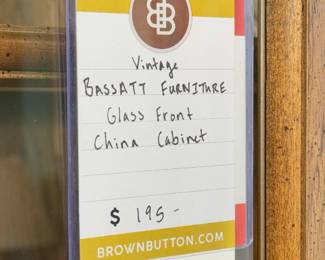 BB
Vintage
BASSATT FURNITURE
Glass Front
China Cabinet
$ 195-
BROWNBUTTON.COM